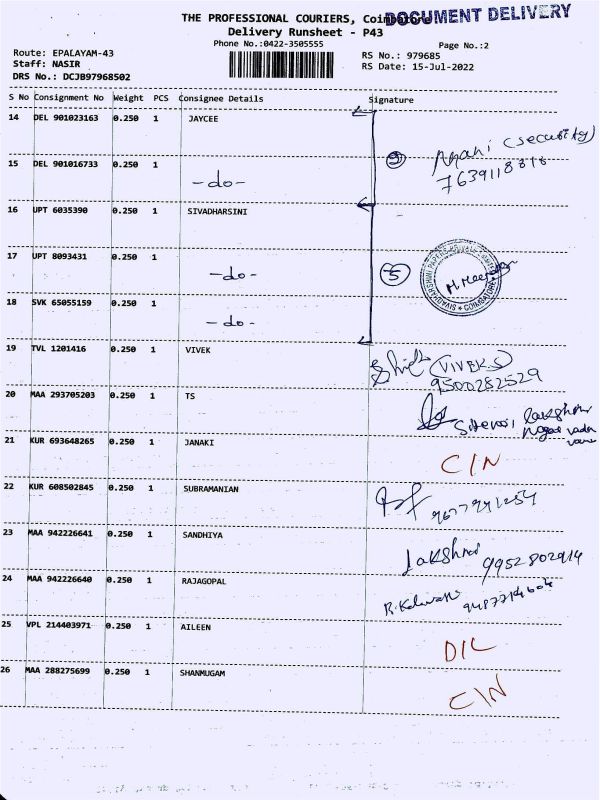 THE PROFESSIONAL COURIERS, Coimbatore
DOCUMENT DELIVERY
Delivery Runsheet - P43
Phone No.:0422-3505555
Page No.:2
Route: EPALAYAM-43
RS No.: 979685
Staff: NASIR
RS Date: 15-Jul-2022
DRS No.: DCJB97968502
S No Consignment No Weight PCS Consignee Details Signature
14 DEL 901023163 0.250 1 JAYCEE
(security)
15 DEL 901016733 0.250 1
-do-
16 UPT 6035390 0.250 1 SIVADHARSINI
17 UPT 8093431 0.250 1
-do- 5
18 SVK 65055159 0.250 1
-do-
19 TVL 1201416 0.250 1 VIVEK
(VIVEK.S)
9500282529
20 MAA 293705203 0.250 1 TS
lakshmi
21 KUR 693648265 0.250 1 JANAKI
C/N
22 KUR 608502845 0.250 1 SUBRAMANIAN
23 MAA 942226641 0.250 1 SANDHIYA
lakshmi 9952802914
24 MAA 942226640 0.250 1 RAJAGOPAL
25 VPL 214403971 0.250 1 AILEEN
D/L
26 MAA 288275699 0.250 1 SHANMUGAM
C/N